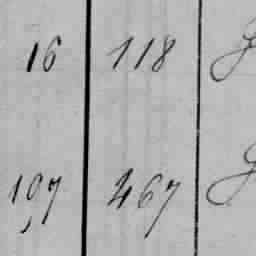 16 118
197 467